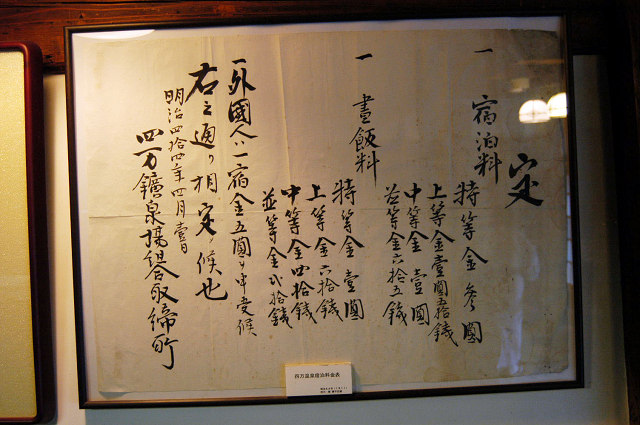 定
一 宿泊料
特等金 参圓
上等金壹圓五拾銭
中等金 壹圓
並等金六拾五銭
一 晝飯料
特等金 壹圓
上等金 六拾銭
中等金 四拾銭
並等金 弐拾銭
一 外國人ハ一宿金五圓ヲ申受候
右之通リ相定メ候也
明治四拾四年四月壹日
四万鑛泉場組合取締所
四万温泉宿泊料金表